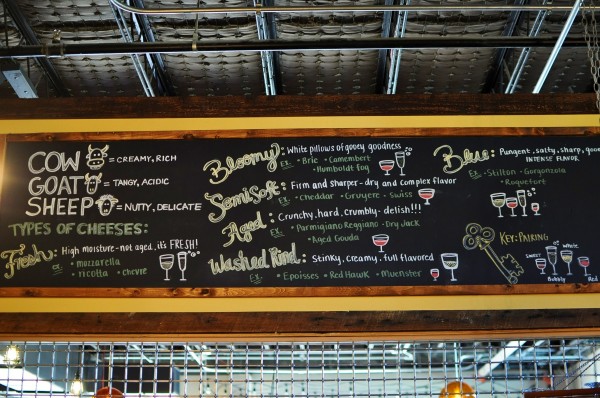 COW = CREAMY, RICH
GOAT = TANGY, ACIDIC
SHEEP = NUTTY, DELICATE
TYPES OF CHEESES:
Fresh: High moisture - not aged, it's FRESH!
Ex. • mozzarella
• ricotta • chevre
Bloomy: White pillows of gooey goodness
Ex. • Brie • Camembert
• Humboldt fog
Semi Soft: Firm and sharper - dry and complex flavor
Ex. • Cheddar • Gruyere • Swiss
Aged: Crunchy, hard, crumbly - delish!!!
Ex. • Parmigiano Reggiano • Dry Jack
• Aged Gouda
Washed Rind: Stinky, creamy, full flavored
Ex. • Epoisses • Red Hawk • Muenster
Blue: Pungent, salty, sharp, goo
INTENSE FLAVOR
Ex. • Stilton • Gorgonzola
• Roquefort
KEY: PAIRING
SWEET
White
Bubbly
Red